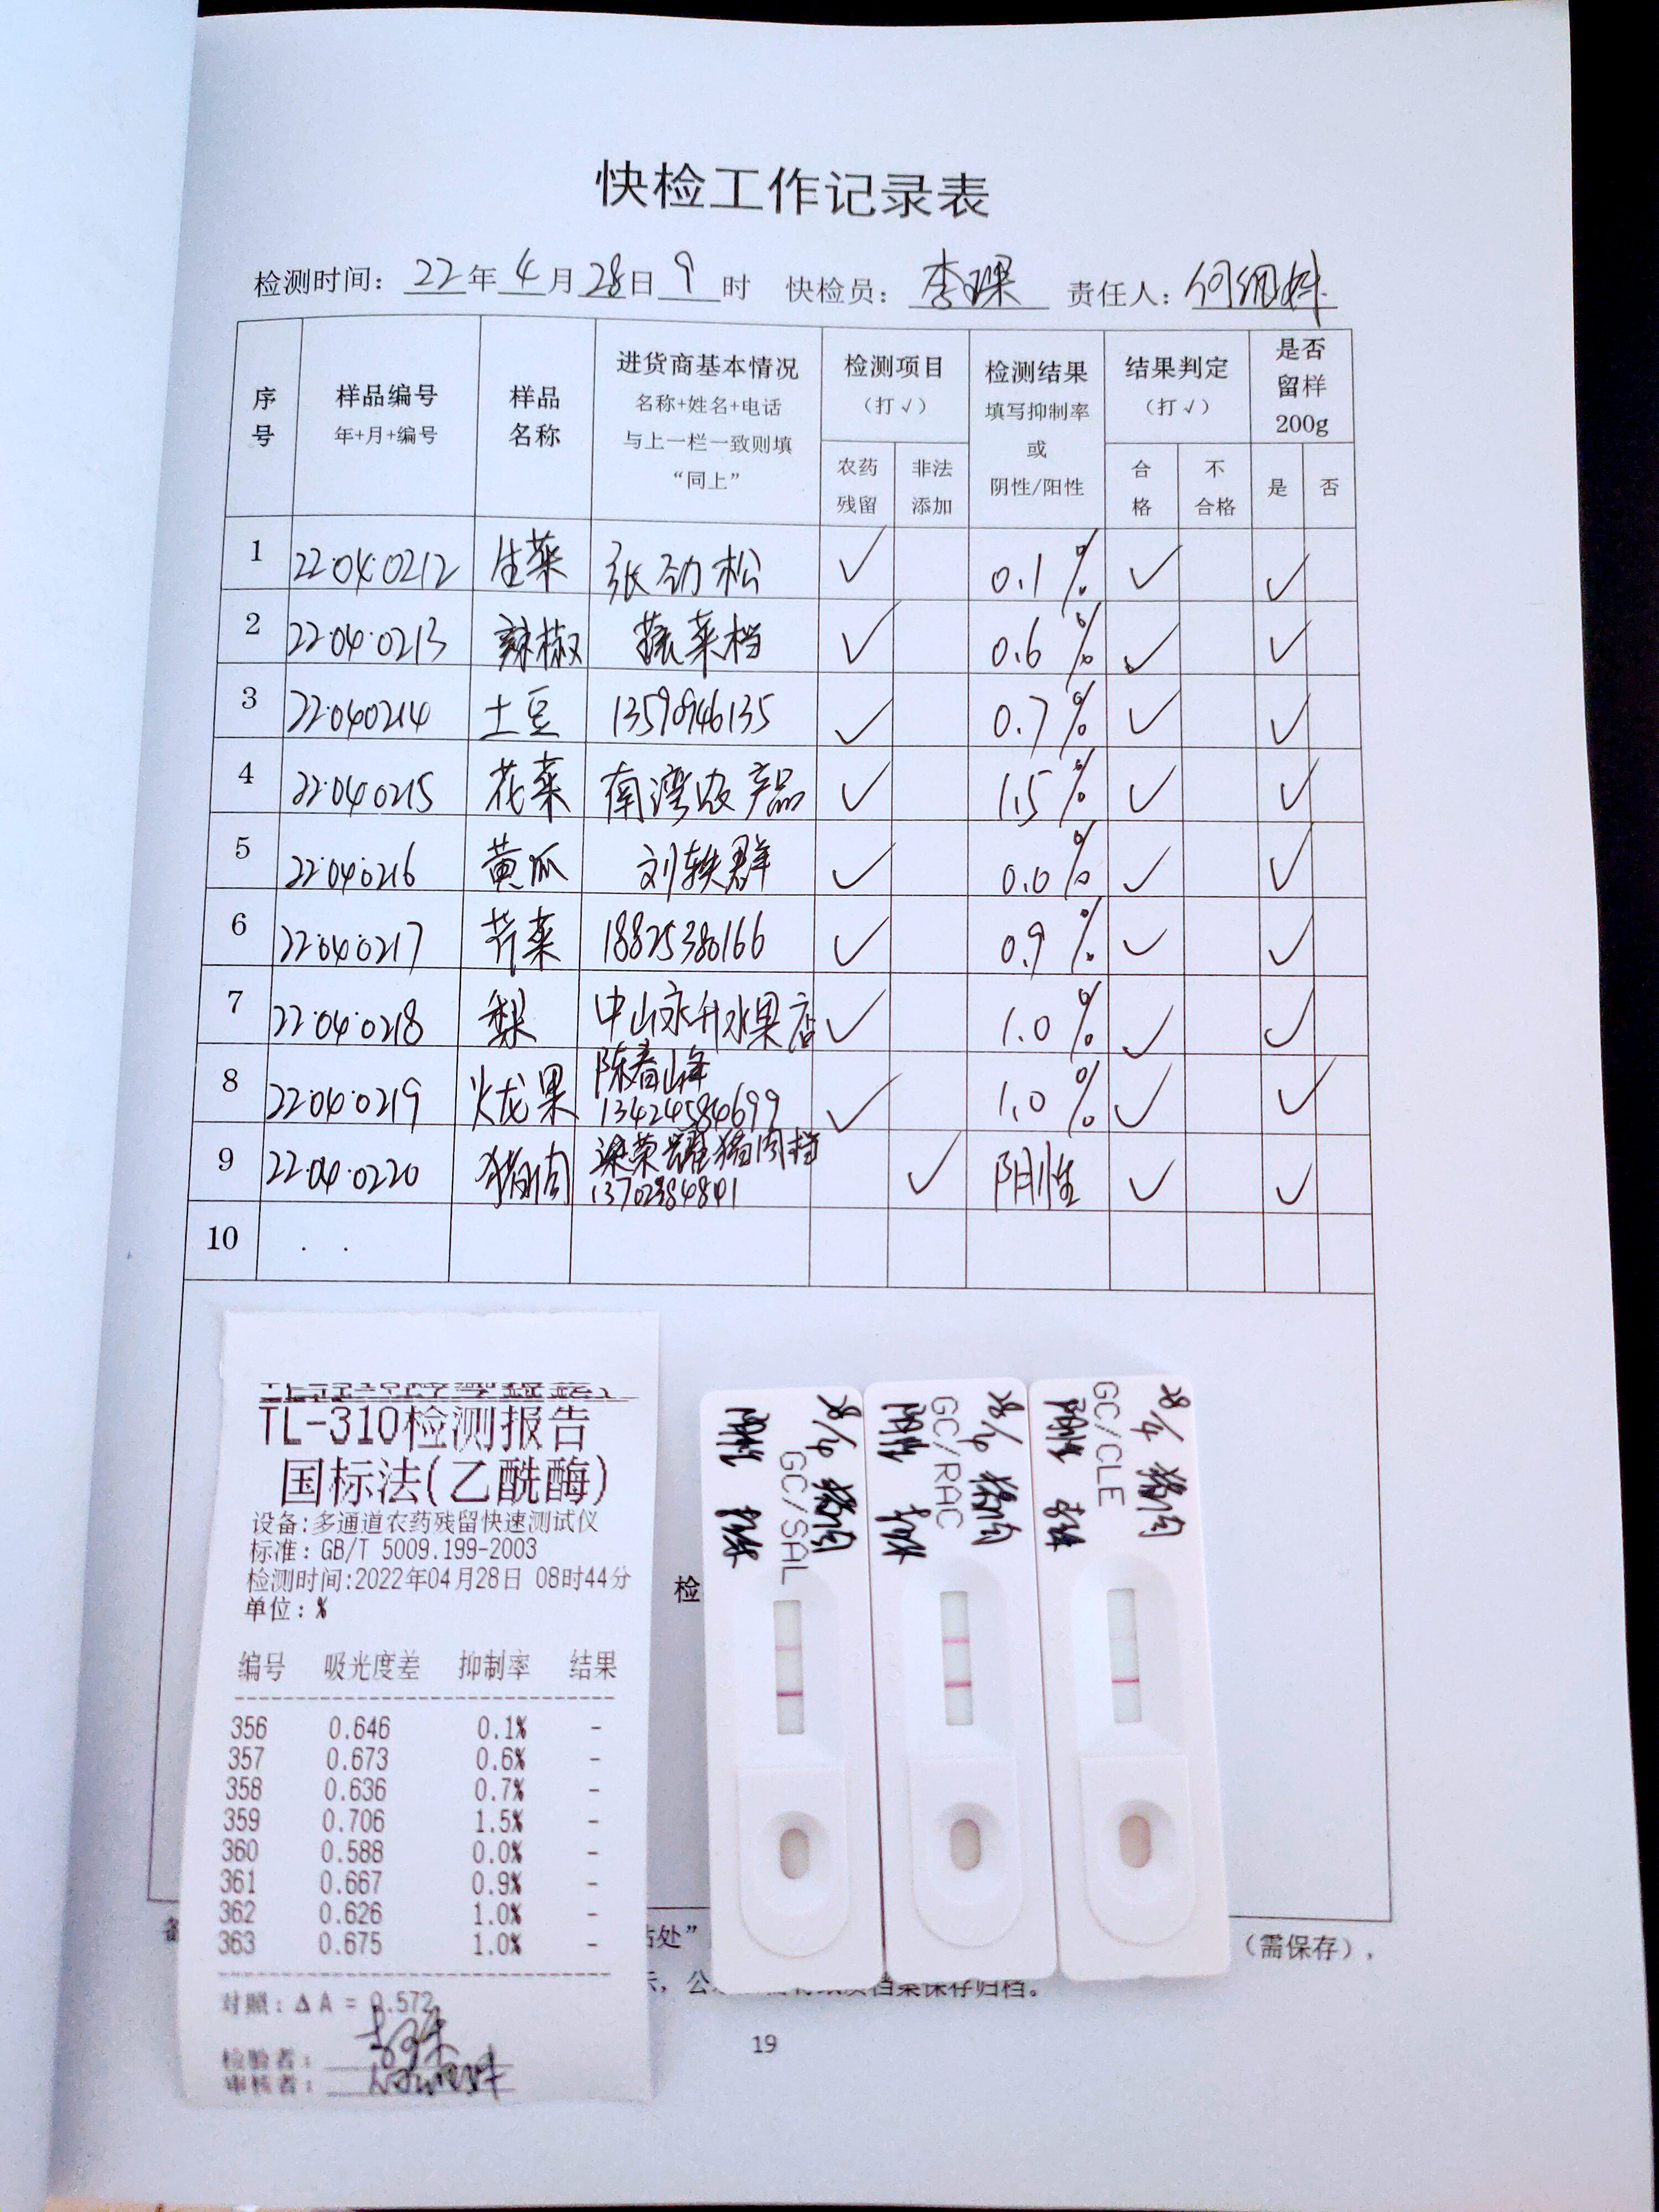 快检工作记录表
检测时间：22年4月28日9时 快检员：李璟 责任人：
序号 样品编号 年+月+编号 样品名称 进货商基本情况 名称+姓名+电话 与上一栏一致则填“同上” 检测项目（打√） 农药残留 非法添加 检测结果 填写抑制率或阴性/阳性 结果判定（打√） 合格 不合格 是否留样200g 是 否
1 22·04·0212 生菜 张劲松 √ 0.1% √ √
2 22·04·0213 辣椒 蔬菜档 √ 0.6% √ √
3 22·040214 土豆 √ 0.7% √ √
4 22·040215 花菜 南湾农产品 √ 1.5% √ √
5 22·04·0216 黄瓜 刘轶群 √ 0.0% √ √
6 22·04·0217 芹菜 18825380166 √ 0.9% √ √
7 22·04·0218 梨 中山永升水果店 √ 1.0% √ √
8 22·04·0219 火龙果 陈春峰 √ 1.0% √ √
9 22·04·0220 猪肉 梁荣耀猪肉档 √ 阴性 √ √
10
TL-310检测报告
国标法(乙酰酶)
设备:多通道农药残留快速测试仪
标准: GB/T 5009.199-2003
检测时间:2022年04月28日 08时44分
单位: %
编号 吸光度差 抑制率 结果
356 0.646 0.1% -
357 0.673 0.6% -
358 0.636 0.7% -
359 0.706 1.5% -
360 0.588 0.0% -
361 0.667 0.9% -
362 0.626 1.0% -
363 0.675 1.0% -
对照: ΔA = 0.572
检验者:
审核者:
检
28/4 猪肉
GC/SAL
阴性
28/4 猪肉
GC/RAC
阴性
28/4 猪肉
GC/CLE
阴性
处”
（需保存），
档案保存归档。
19